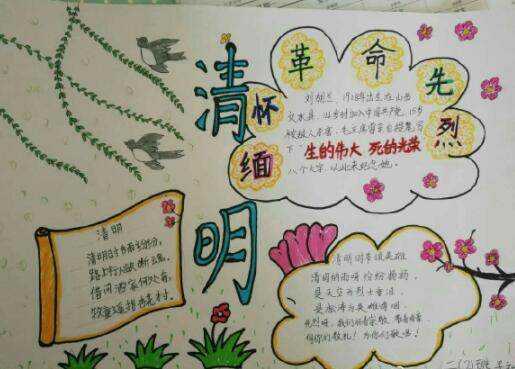 清明
缅怀革命先烈
刘胡兰，1932年出生在山西
文水县，14岁时加入中国共产党，15岁
被敌人杀害，毛主席亲自题写
下"生的伟大 死的光荣"
八个大字，以此来纪念她。
清明
清明时节雨纷纷，
路上行人欲断魂。
借问酒家何处有，
牧童遥指杏花村。
清明时节颂英雄
清明的雨啊 纷纷扬扬，
是天空为烈士垂泪，
是松涛为英雄
先烈呀，我们向
向你们敬礼！为你们歌唱！
二(2)班